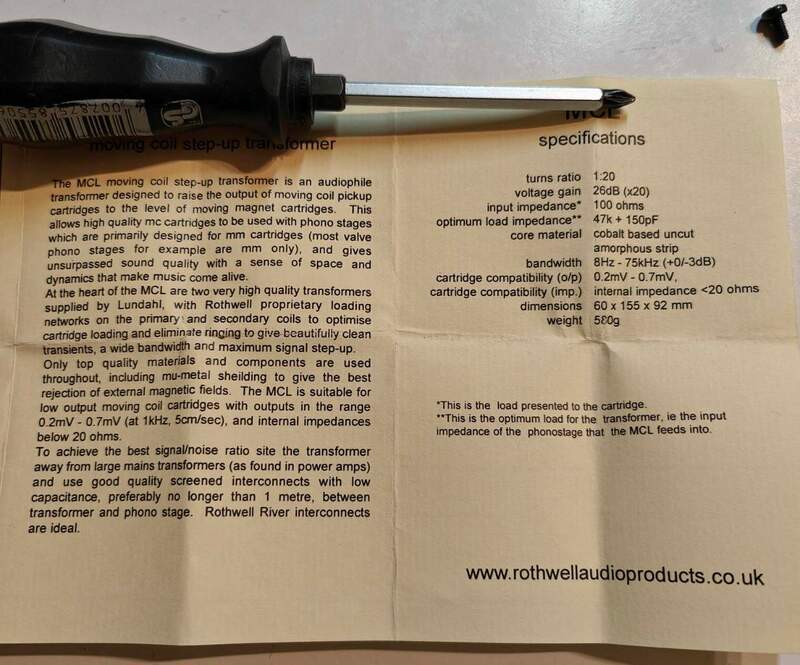 moving coil step-up transformer
The MCL moving coil step-up transformer is an audiophile
transformer designed to raise the output of moving coil pickup
cartridges to the level of moving magnet cartridges. This
allows high quality mc cartridges to be used with phono stages
which are primarily designed for mm cartridges (most valve
phono stages for example are mm only), and gives
unsurpassed sound quality with a sense of space and
dynamics that make music come alive.
At the heart of the MCL are two very high quality transformers
supplied by Lundahl, with Rothwell proprietary loading
networks on the primary and secondary coils to optimise
cartridge loading and eliminate ringing to give beautifully clean
transients, a wide bandwidth and maximum signal step-up.
Only top quality materials and components are used
throughout, including mu-metal sheilding to give the best
rejection of external magnetic fields. The MCL is suitable for
low output moving coil cartridges with outputs in the range
0.2mV - 0.7mV (at 1kHz, 5cm/sec), and internal impedances
below 20 ohms.
To achieve the best signal/noise ratio site the transformer
away from large mains transformers (as found in power amps)
and use good quality screened interconnects with low
capacitance, preferably no longer than 1 metre, between
transformer and phono stage. Rothwell River interconnects
are ideal.
MCL
specifications
turns ratio 1:20
voltage gain 26dB (x20)
input impedance* 100 ohms
optimum load impedance** 47k + 150pF
core material cobalt based uncut
amorphous strip
bandwidth 8Hz - 75kHz (+0/-3dB)
cartridge compatibility (o/p) 0.2mV - 0.7mV,
cartridge compatibility (imp.) internal impedance <20 ohms
dimensions 60 x 155 x 92 mm
weight 580g
*This is the load presented to the cartridge.
**This is the optimum load for the transformer, ie the input
impedance of the phonostage that the MCL feeds into.
www.rothwellaudioproducts.co.uk